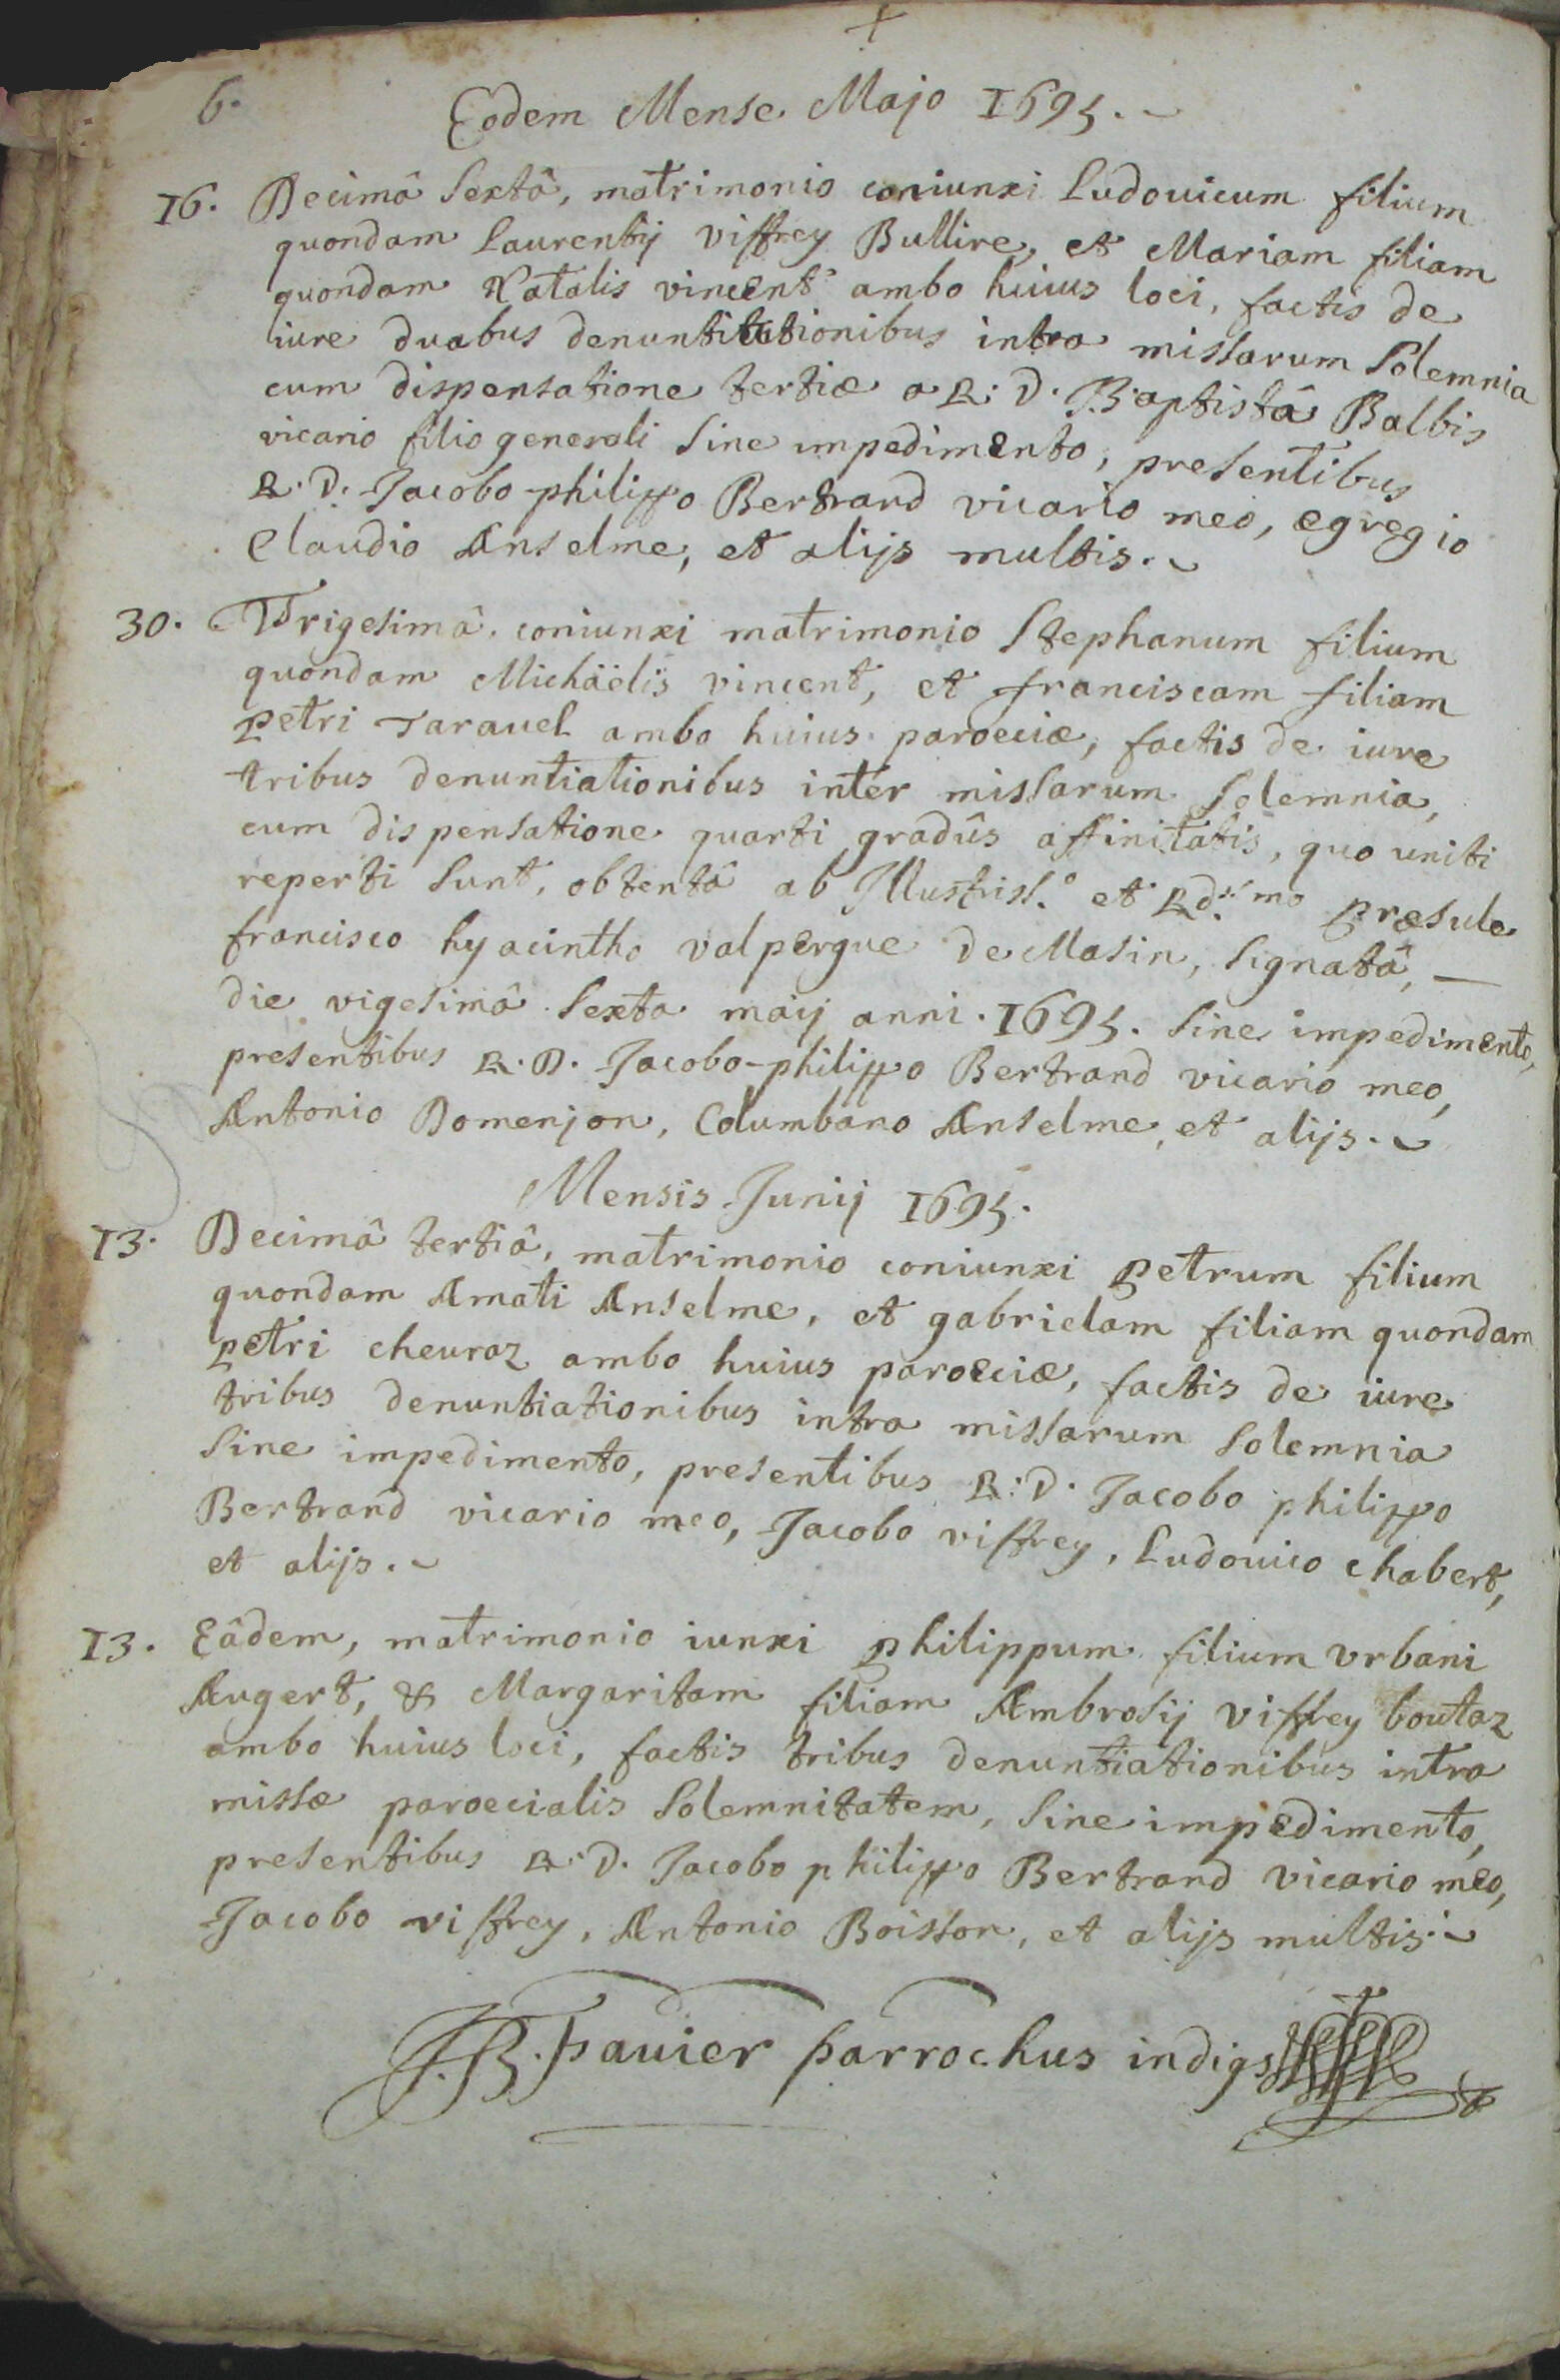 +
6.
Eodem Mense Majo 1695.
16. Decimâ sextâ, matrimonio coniunxi Ludouicum filium
quondam Laurentij viffrey Bullire, et Mariam filiam
quondam Natalis vincent ambo huius loci, factis de
iure duabus denuntitationibus intra missarum solemnia
cum dispensatione tertiæ a R: D. Baptistâ Balbis
vicario generali sine impedimento, presentibus
R. D. Jacobo-philippo Bertrand vicario meo, egregio
Claudio Anselme, et alijs multis.
30. Trigesimâ coniunxi matrimonio Stephanum filium
quondam Michäelis vincent, et franciscam filiam
petri Tarauel ambo huius paroeciæ, factis de iure
tribus denuntiationibus inter missarum solemnia,
cum dispensatione quarti gradûs affinitatis, quo uniti
reperti sunt, obtentâ ab Illustriss.o et Rd.mo præsule
francisco hyacintho valpergue de Masin, signatâ, —
die vigesimâ sexta maij anni. 1695. sine impedimento,
presentibus R. D. Jacobo-philippo Bertrand vicario meo,
Antonio Domenjon, Columbano Anselme, et alijs.
Mensis Junij 1695.
13. Decimâ tertiâ, matrimonio coniunxi petrum filium
quondam Amati Anselme, et gabrielam filiam quondam
petri cheuraz ambo huius paroeciæ, factis de iure
tribus denuntiationibus intra missarum solemnia
sine impedimento, presentibus R: D. Jacobo philippo
Bertrand vicario meo, Jacobo viffrey, Ludouico chabert,
et alijs.
13. Eâdem, matrimonio iunxi philippum filium vrbani
Augert, & Margaritam filiam Ambrosij viffrey boutaz
ambo huius loci, factis tribus denuntiationibus intra
missæ paroecialis solemnitatem, sine impedimento,
presentibus R. D. Jacobo philippo Bertrand vicario meo,
Jacobo viffrey, Antonio Boisson, et alijs multis.
JB. Favier parrochus indigs